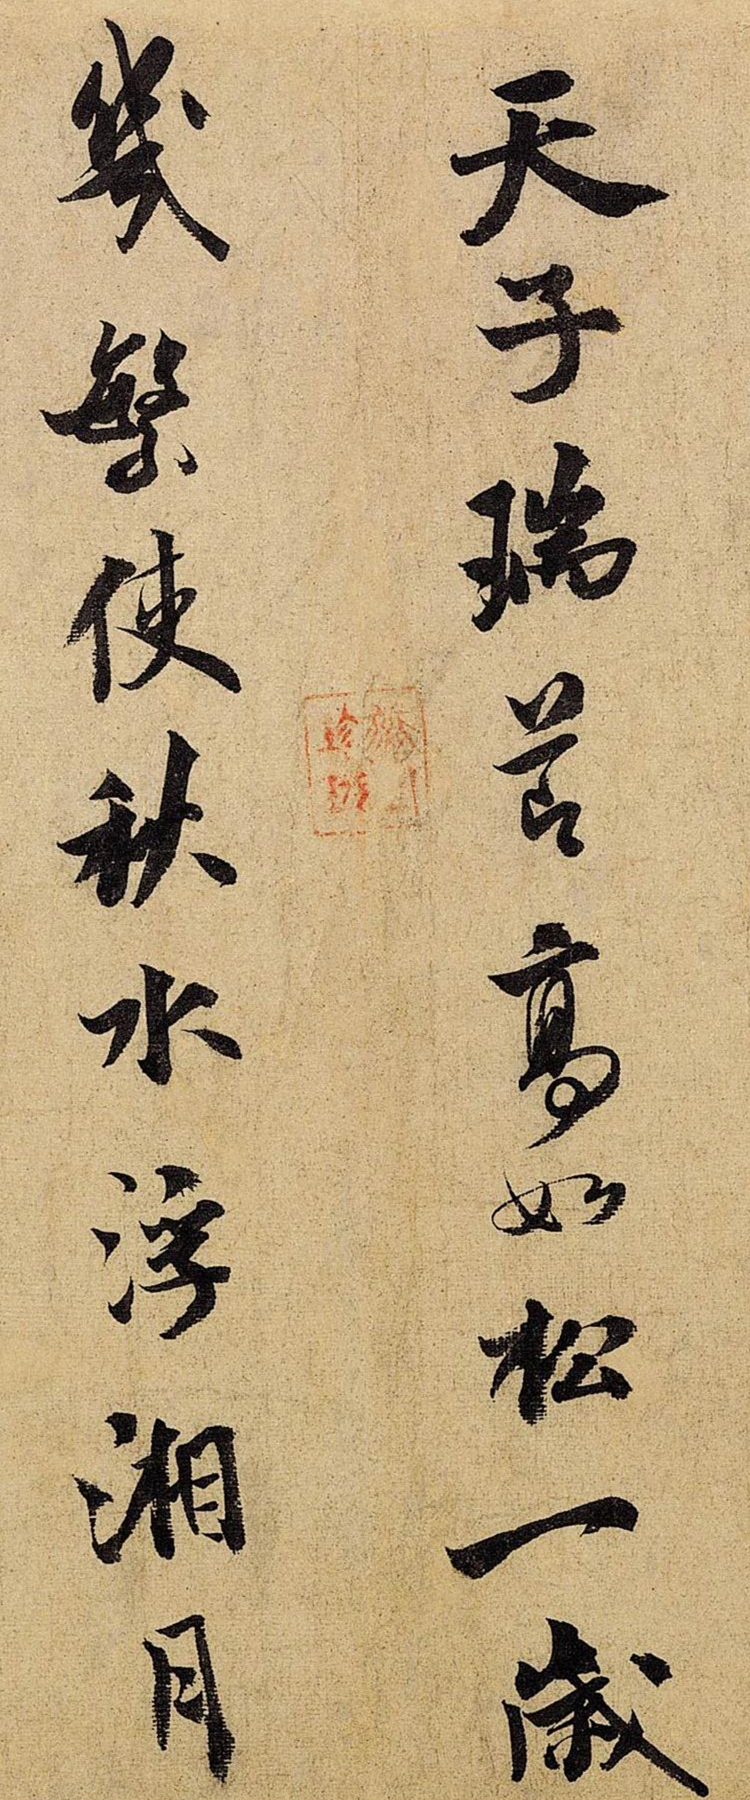 天子瑞節高如松一歲
幾繁使秋水浮湘月